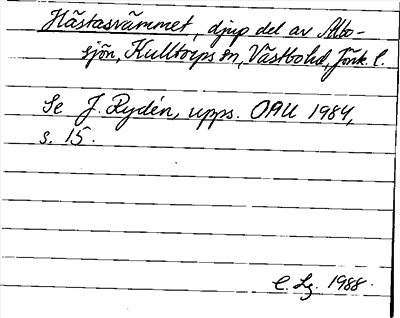 Hästasvämmet, djup del av Albo-
sjön, Kulltorps sn, Västbo hd, Jönk. l.
Se J. Rydén, upps. OAU 1984,
s. 15.
C. Lg. 1988.